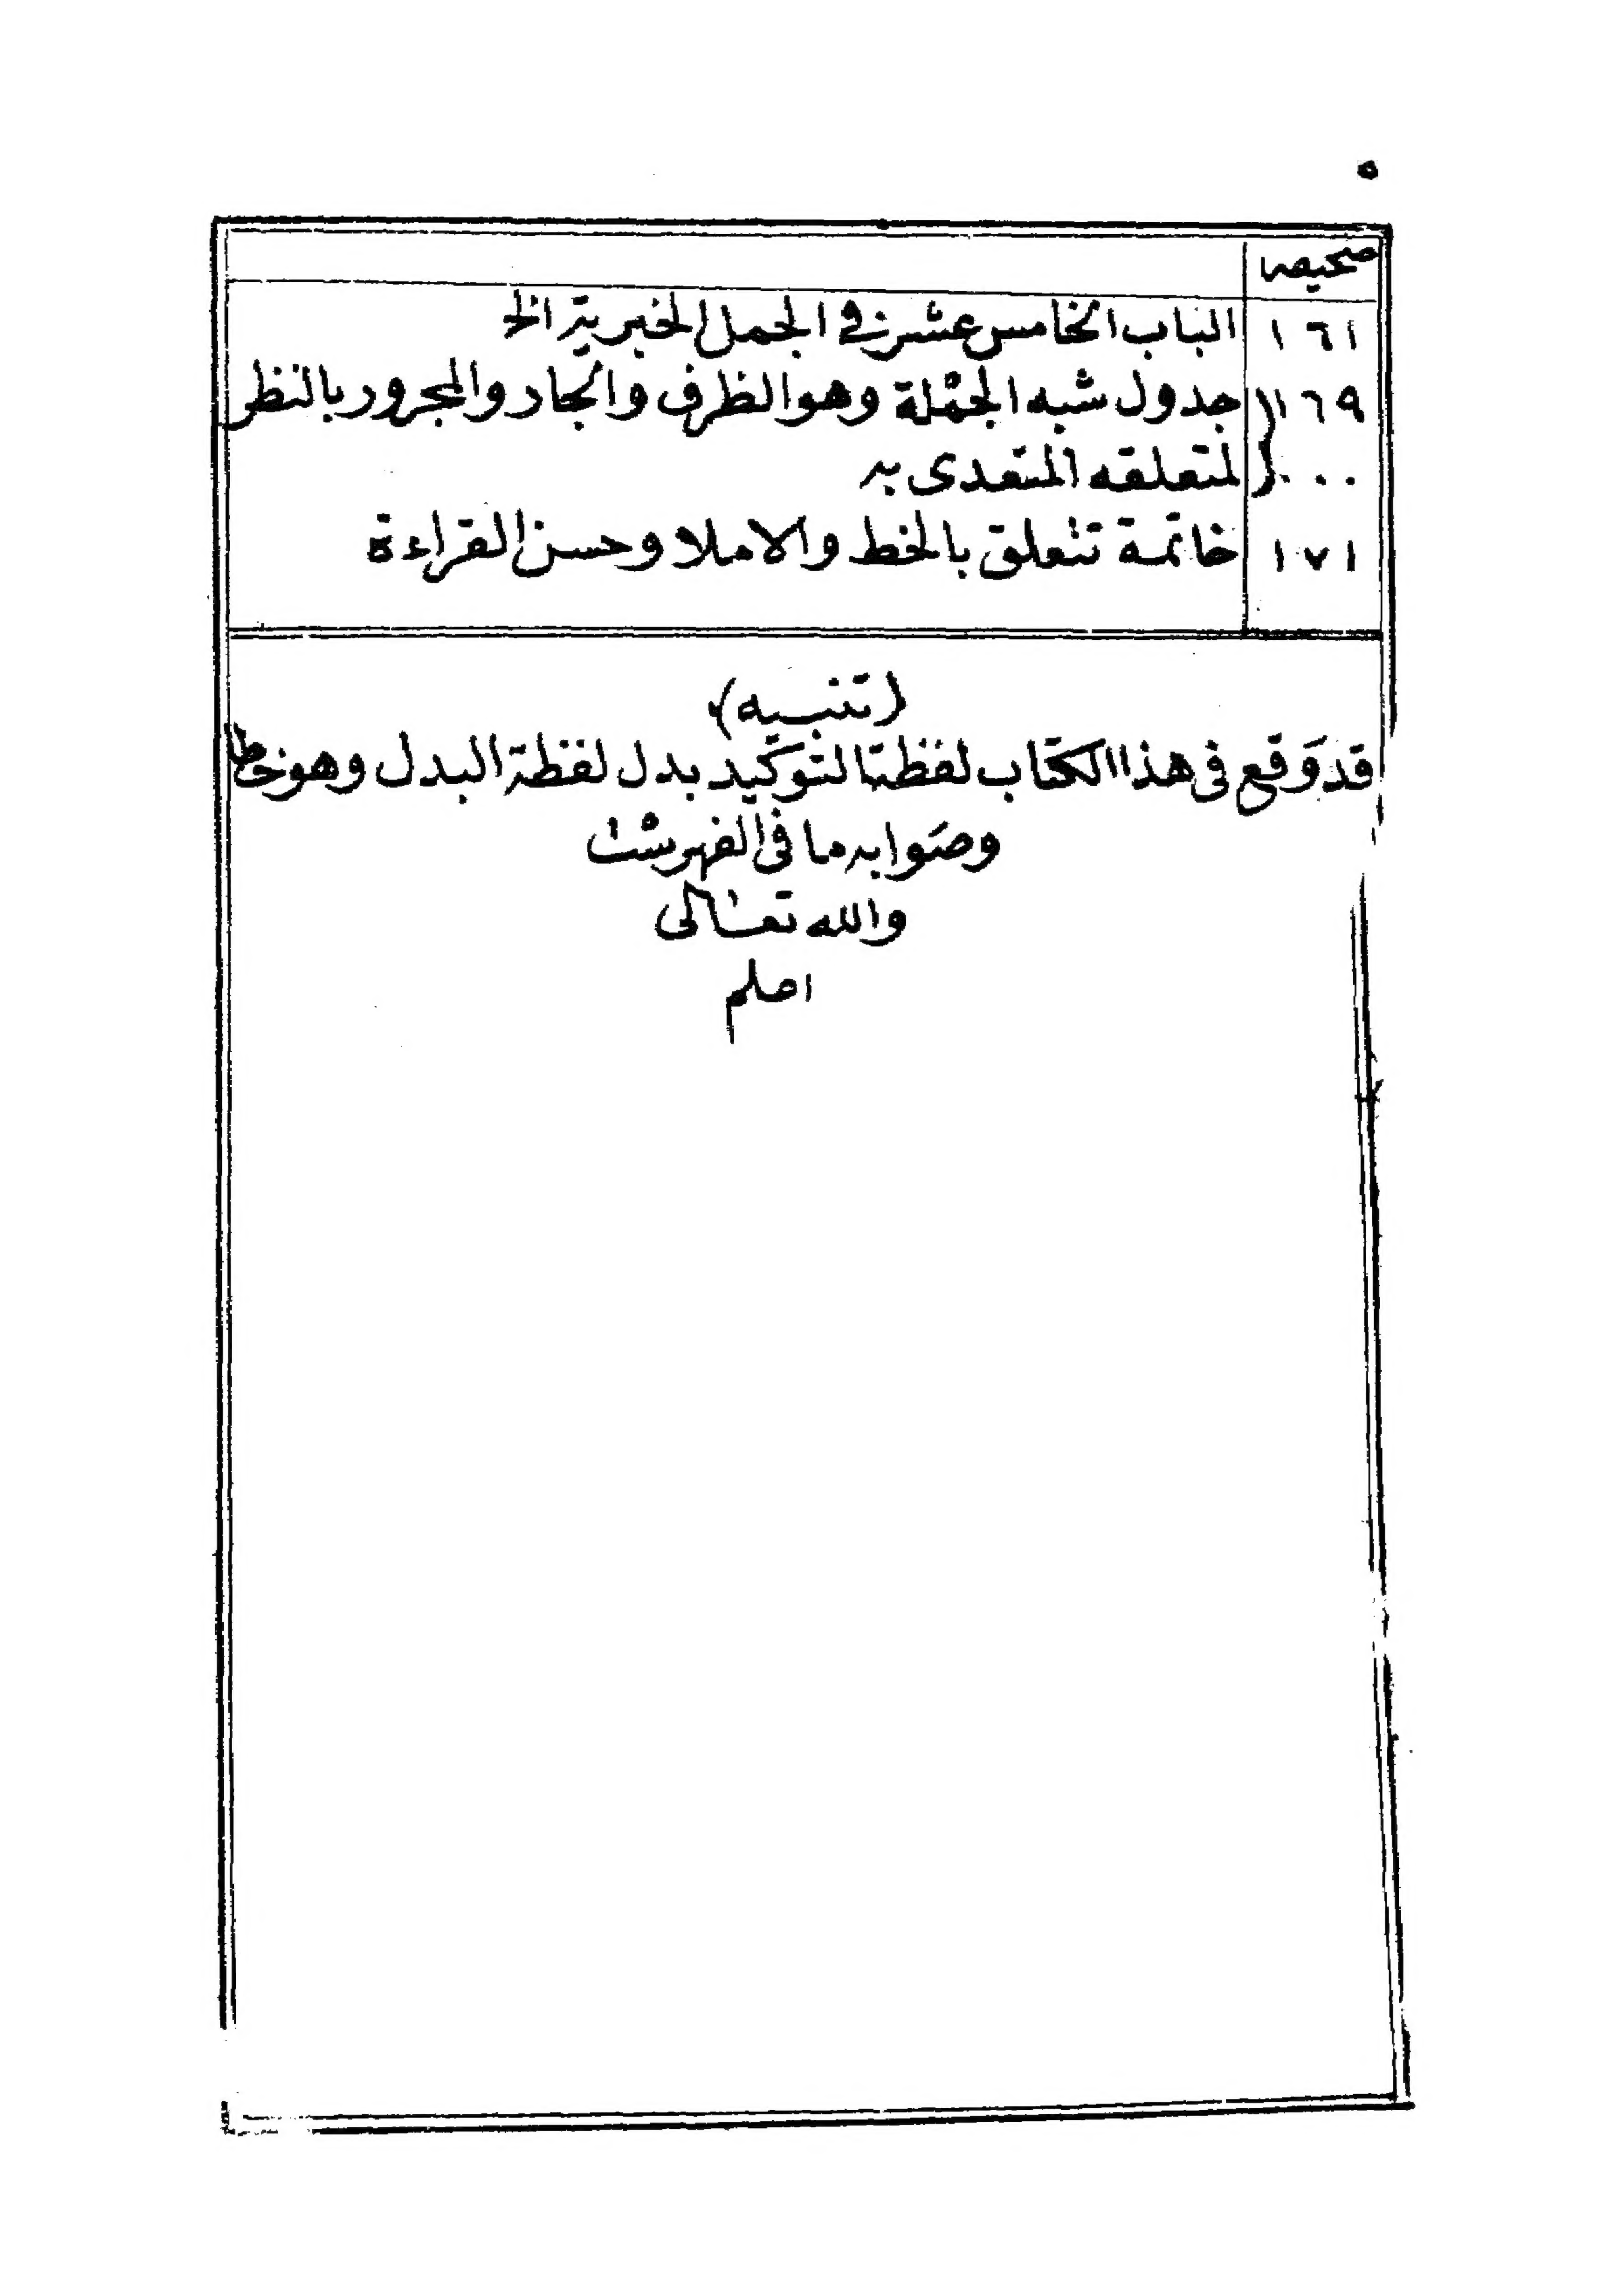 ٥
صحيفه
١٦١ الباب الخامس عشر في الجمل الخبرية الخ
١٦٩ جدول شبه الجملة وهو الظرف والجار والمجرور بالنظر
٠٠٠ لمتعلقه المتعدى به
١٧١ خاتمة تتعلق بالخط والاملا وحسن القراءة
(تنبيه)
قد وقع فى هذا الكتاب لفظة التوكيد بدل لفظة البدل وهو خطا
وصوابه ما فى الفهرست
والله تعالى
اعلم